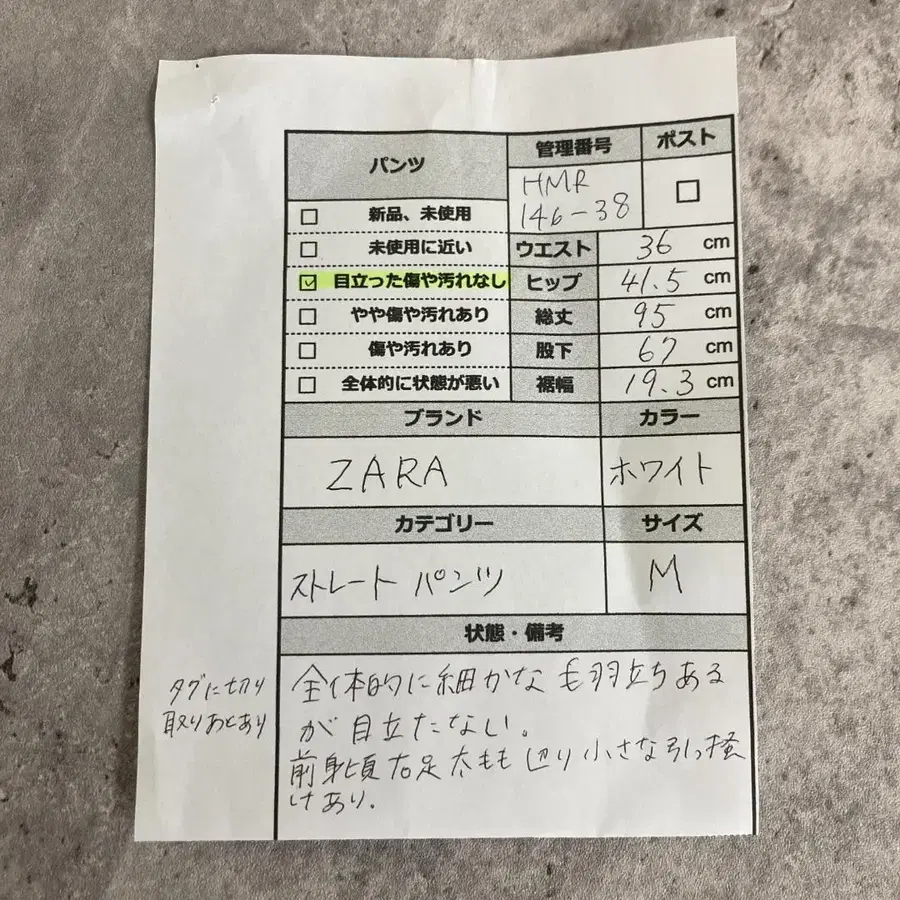 パンツ
管理番号
ポスト
HMR
146-38
新品、未使用
未使用に近い
目立った傷や汚れなし
やや傷や汚れあり
傷や汚れあり
全体的に状態が悪い
ウエスト 36 cm
ヒップ 41.5 cm
総丈 95 cm
股下 67 cm
裾幅 19.3 cm
ブランド
カラー
ZARA
ホワイト
カテゴリー
サイズ
ストレート パンツ
M
状態・備考
全体的に細かな毛羽立ちある
が目立たない。
前身頃右足太もも辺り小さな引っ掻
けあり.
タグに切り
取りあとあり